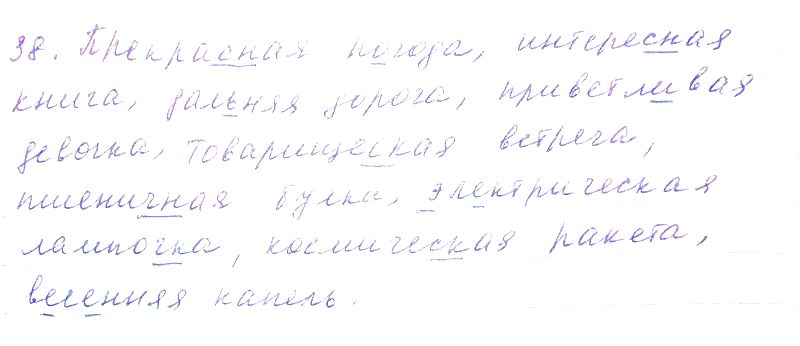 38. Прекрасная погода, интересная
книга, дальняя дорога, приветливая
девочка, товарищеская встреча,
пшеничная булка, электрическая
лампочка, космическая ракета,
весенняя капель.